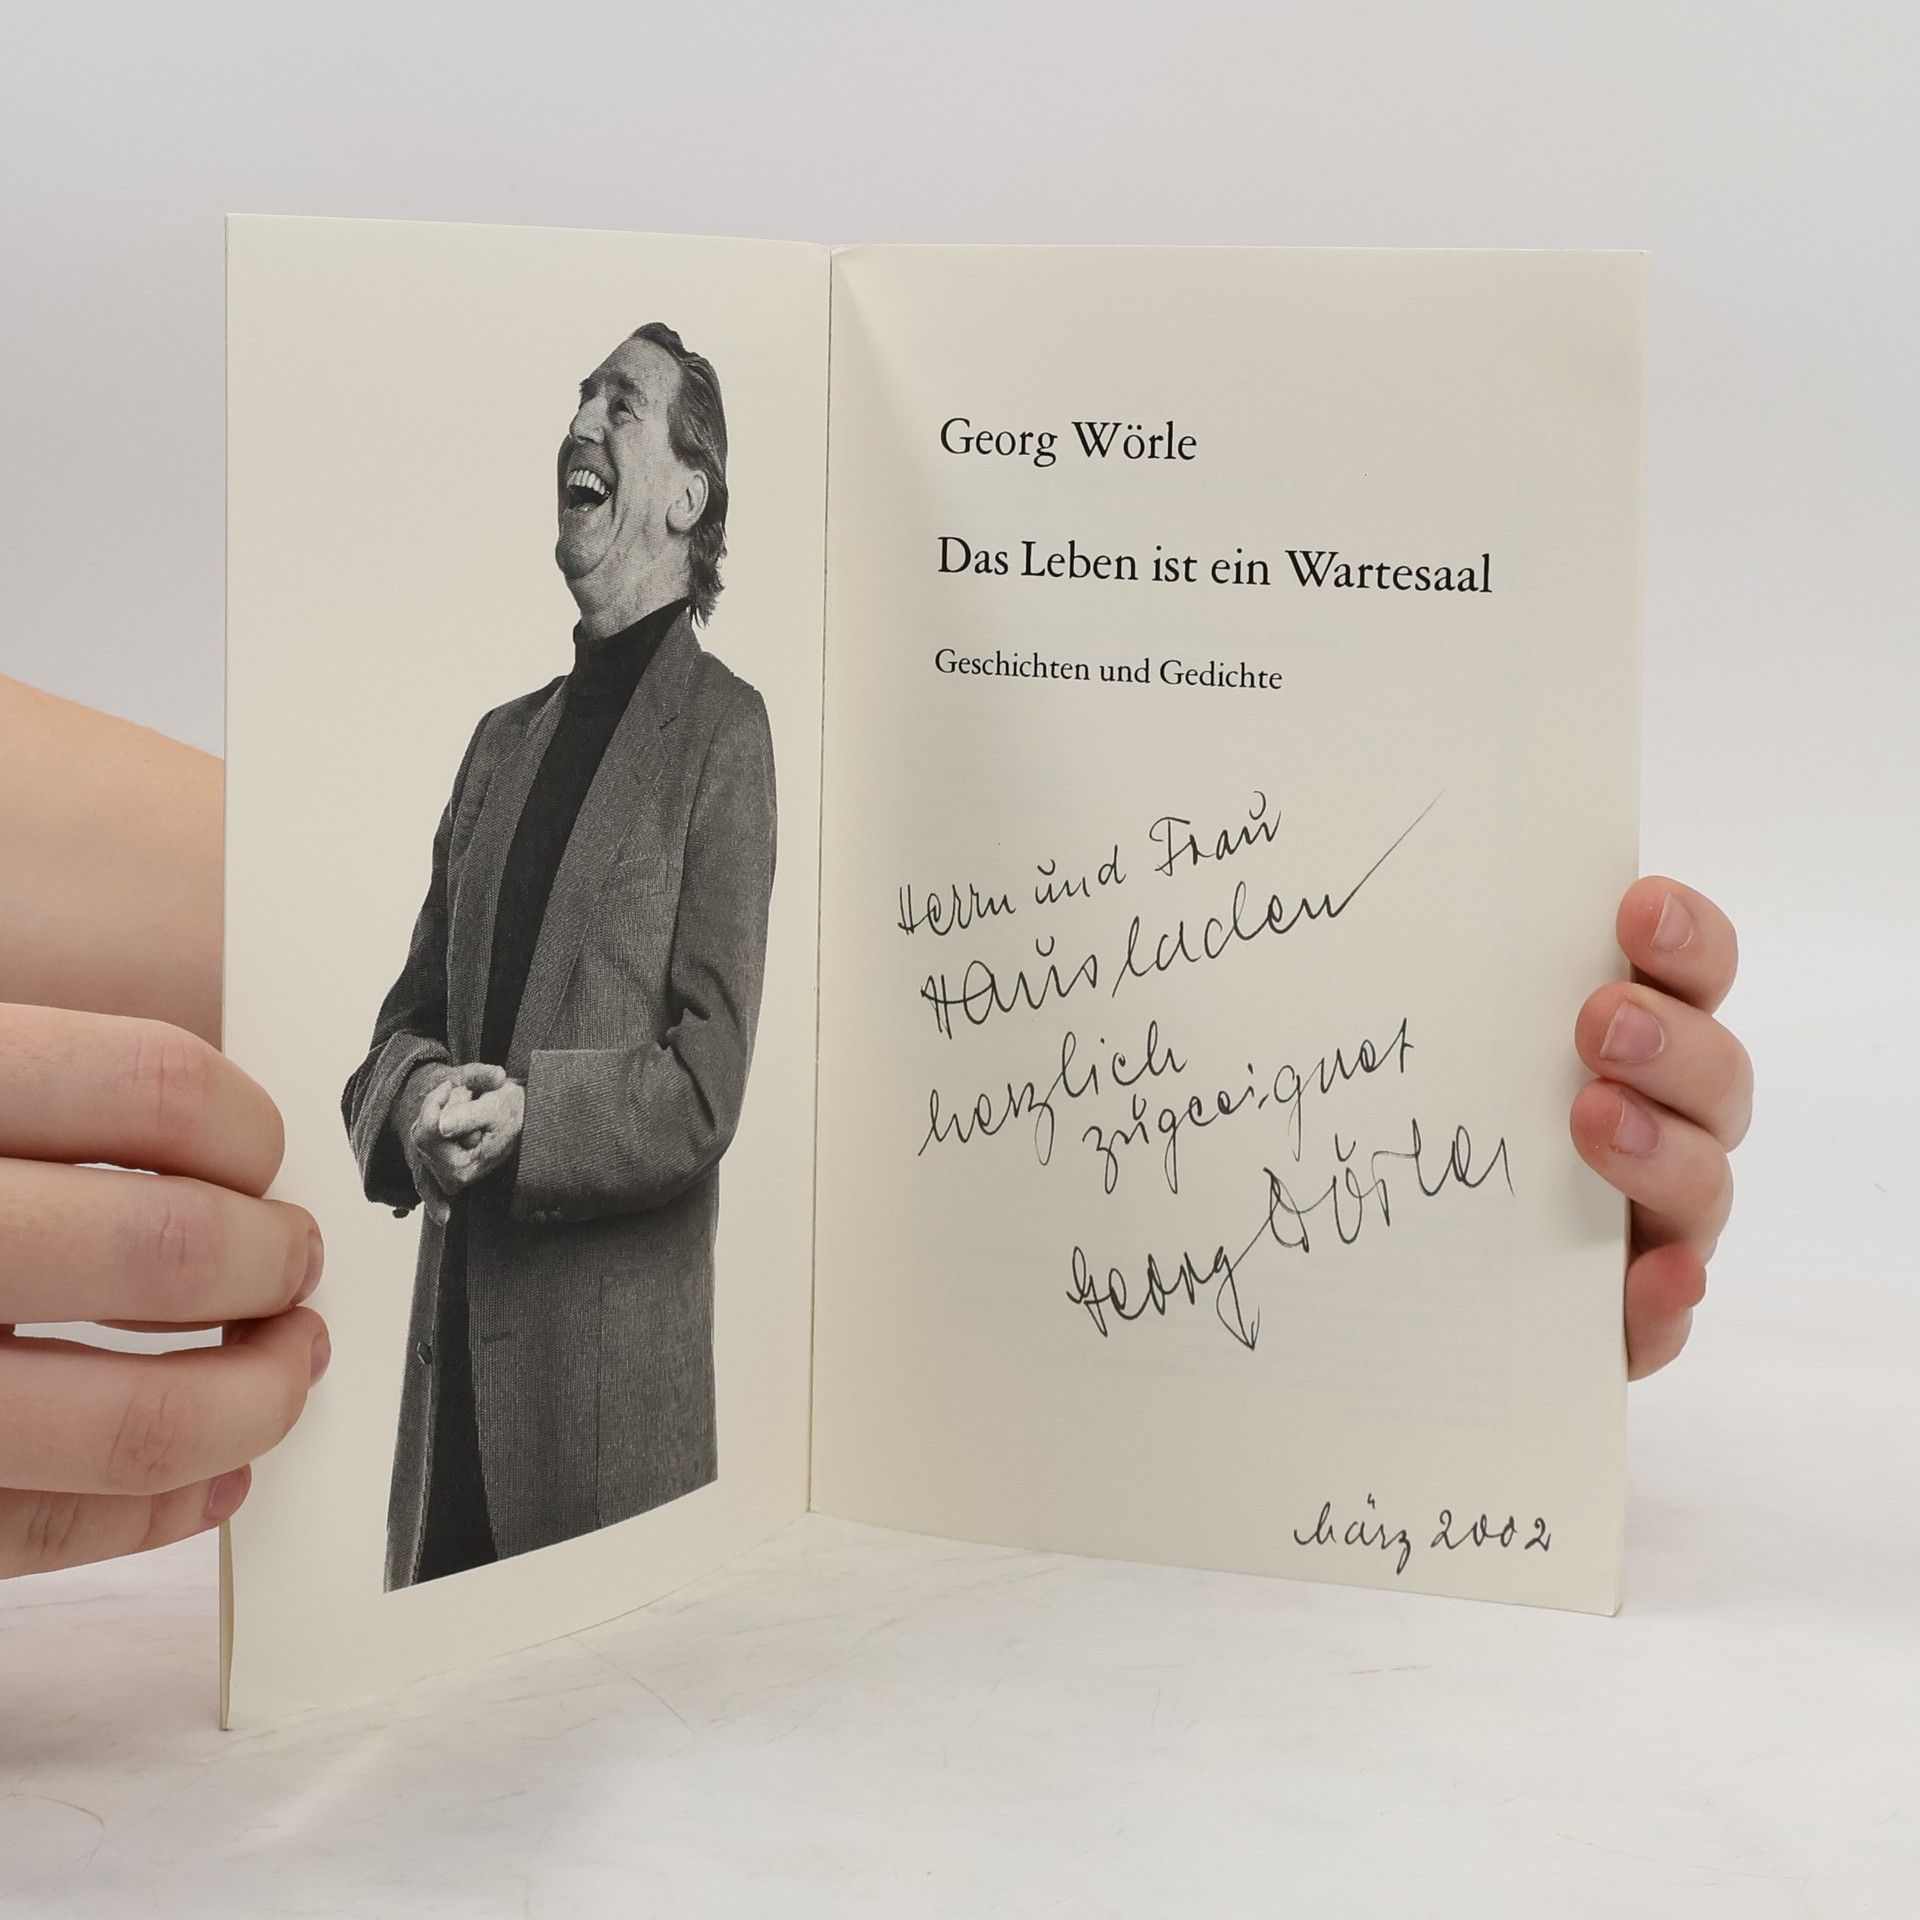 Georg Wörle
Das Leben ist ein Wartesaal
Geschichten und Gedichte
Herrn und Frau
Hausladen
herzlich
zugeeignet
Georg Wörle
März 2002